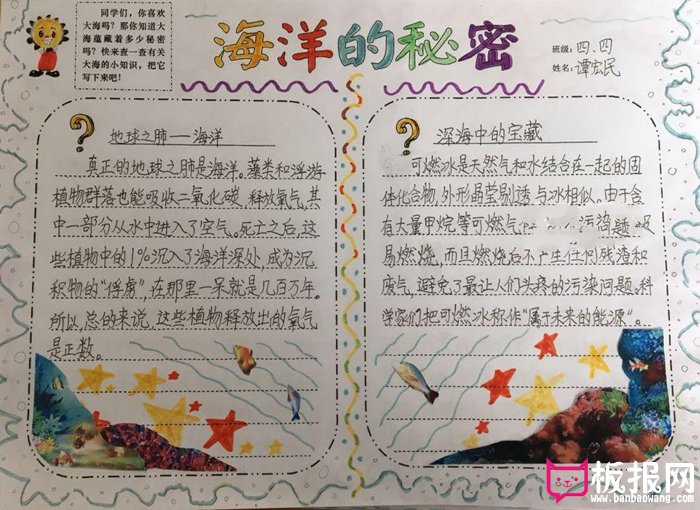 同学们，你喜欢
大海吗？那你知道大
海蕴藏着多少秘密
吗？快来查一查有关
大海的小知识，把它
写下来吧！
海洋的秘密
班级：四、四
姓名：谭宏民
地球之肺——海洋
真正的地球之肺是海洋。藻类和浮游
植物群落也能吸收二氧化碳，释放氧气，其
中一部分从水中进入了空气。死亡之后，这
些植物中的1%沉入了海洋深处，成为沉
积物的“俘虏”，在那里一呆就是几百万年。
所以，总的来说，这些植物释放出的氧气
是正数。
深海中的宝藏
可燃冰是天然气和水结合在一起的固
体化合物，外形晶莹剔透与冰相似。由于含
有大量甲烷等可燃气 污染题 极
易燃烧，而且燃烧后不产生任何残渣和
废气，避免了最让人们头疼的污染问题。科
学家们把可燃冰称作“属于未来的能源”。
板报网
www.banbaowang.com